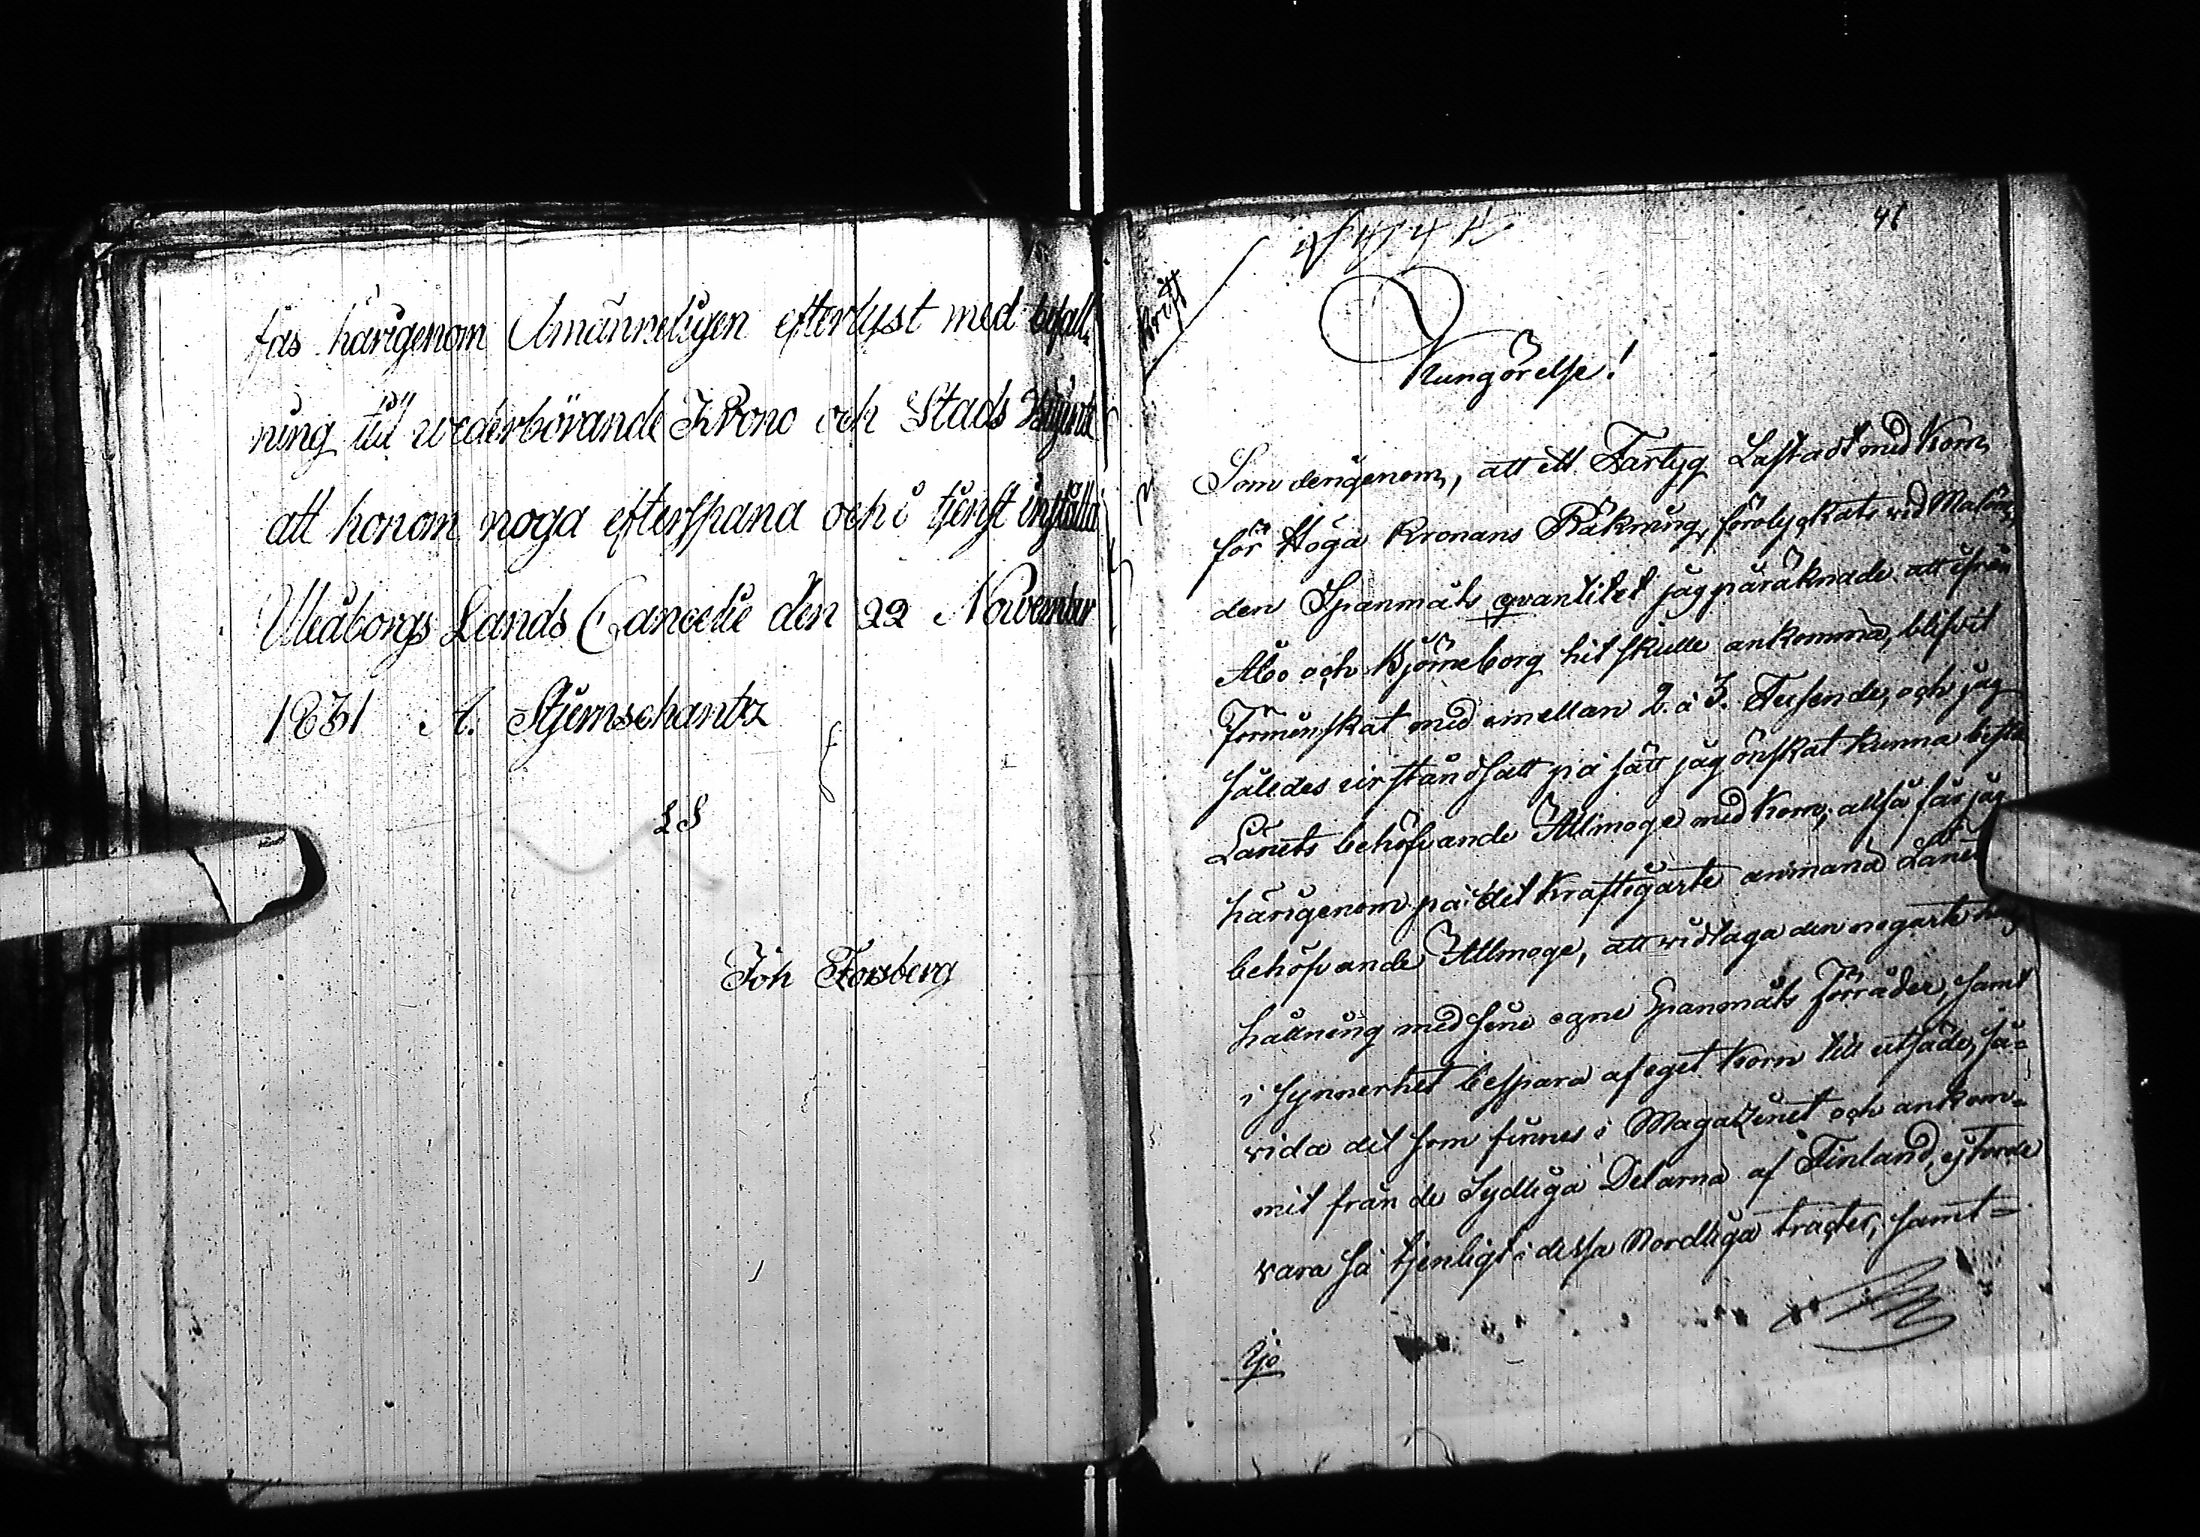 fas härigenom Almänneligen efterlyst med befall,
ning till wederbörande Krono och Stads
att honom noga efterspana och i tjenst inställa
Uleåborgs Lands Cancelie den 22 November
1831 A. Stjernschantz
LS
Joh Forsberg
41
Kungörelse!
Som derigenom, att ett Fartyg Lastadt med Korn,
för Höga Kronans Räkning, förolyckats vid
den Spanmåls qvantitet jag påräknade att ifrån
Åbo och Björneborg hit skulle ankomma, blifvit
Förminskat med emellan 2. à 3. Tusende, och jag
således urståndsatt på sätt jag önskat kunna
Länets behöfvande Allmoge med Korn; alltså får jag
härigenom på det Kraftigaste anmana Länets
behöfvande Allmoge, att vidtaga den nogaste
hållning med sine egne Spanmåls Förråder, samt
i synnerhet bespara af eget Korn till utsäde, så-
vida det som finnes i Magazinet och ankom-
mit från de Sydliga Delarna af Finland, ej torde
vara så tjenligt i dessa Nordliga tracter, samt-